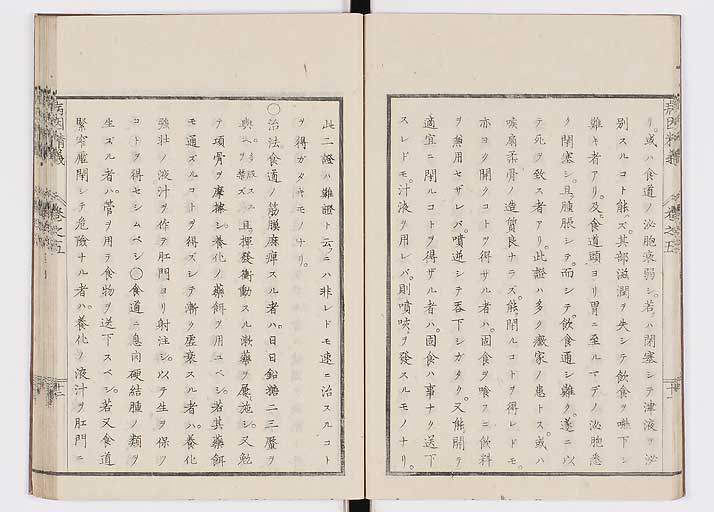 リ。或ハ食道ノ泌胞衰弱シ。若ハ閉塞シテ津液ヲ泌
別スルコト能ハズ。其部滋潤ヲ失シテ飲食ヲ嚥下シ
難キ者アリ。及ビ食道頭ヨリ胃ニ至ルマデノ泌胞悉
ク閉塞シ。且腫脹シテ。而シテ。飲食通シ難ク。遂ニ以
テ死ヲ致ス者アリ。此證ハ多ク癥家ノ患トス。或ハ
喉扇柔骨ノ造質良ナラズ。能閉ルコトヲ得レドモ。
亦ヨク開クコトヲ得ザル者ハ。固食ヲ喰フニ飲料
ヲ兼用セザレバ。噴逆シテ呑下シガタク。又能開テ
適宜ニ閉ルコトヲ得ザル者ハ。固食ハ事ナク送下
スレドモ。汁液ヲ用レバ。則噴咳ヲ發スルモノナリ。
病因精義
卷之五
十一
此二證ハ難證ト云フニハ非レドモ速ニ治スルコト
ヲ得ガタキモノナリ。
○治法。食道ノ筋膜麻痺スル者ハ。日日鉛糖二三厘ヲ
與ヘ。且揮發衝動スル漱藥ヲ屡施シ。又勉
テ項骨ヲ摩擦シ。養化ノ藥餌ヲ用ユベシ。若其藥餌
モ通ズルコトヲ得ズシテ漸ク虛棄スル者ハ。養化
強壯ノ液汁ヲ作テ肛門ヨリ射注シ。以テ生ヲ保ツ
コトヲ得セシムベシ○食道ニ息肉硬結腫ノ類ヲ
生ズル者ハ。管ヲ用テ食物ヲ送下スベシ。若又食道
緊窄壓閉シテ危險ナル者ハ。養化ノ液汁ヲ肛門ニ
病因精義
卷之五
十二